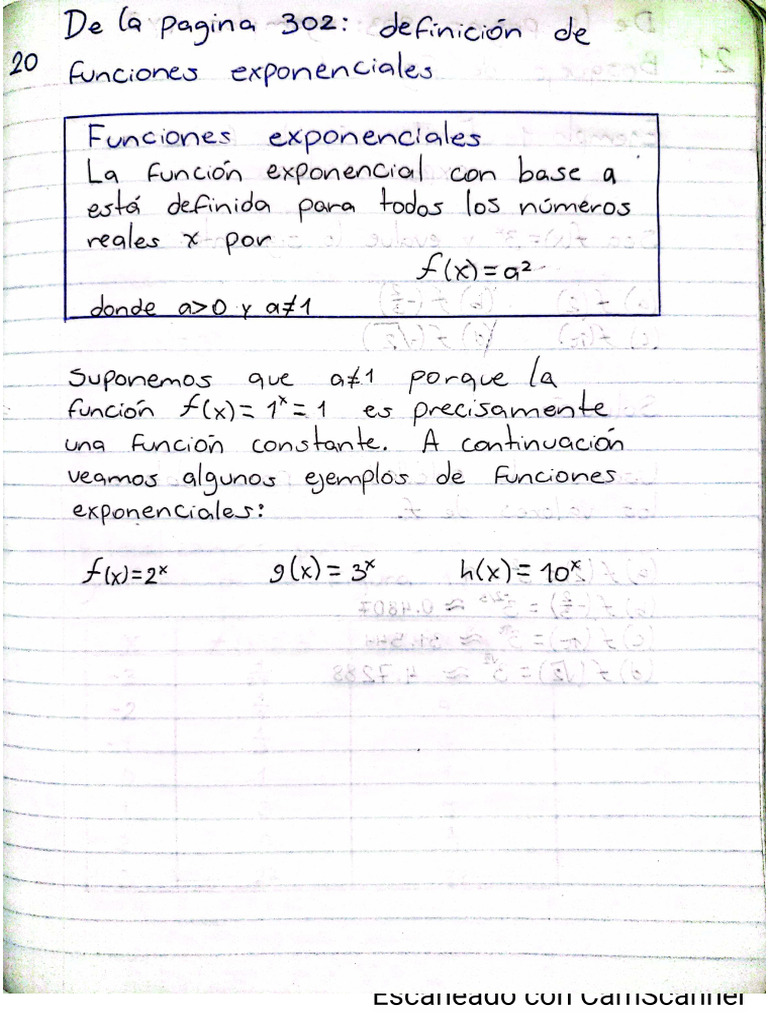 De la pagina 302: definición de
20 funciones exponenciales
Funciones exponenciales
La función exponencial con base a
está definida para todos los números
reales x por
f(x) = a²
donde a>0 y a≠1
Suponemos que a≠1 porque la
función f(x) = 1ˣ = 1 es precisamente
una función constante. A continuación
veamos algunos ejemplos de funciones
exponenciales:
f(x) = 2ˣ g(x) = 3ˣ h(x) = 10ˣ
Escaneado con CamScanner